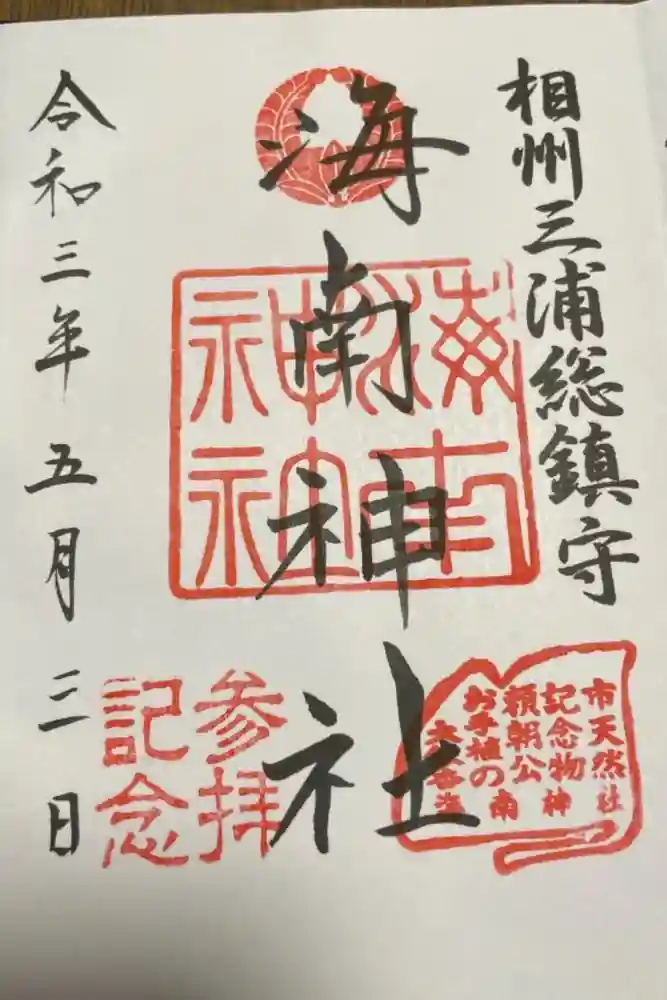 相州三浦総鎮守
海南神社
海南
神社
令和三年五月三日
参拝
記念
市天然
記念物
頼朝公
お手植の
海南神社